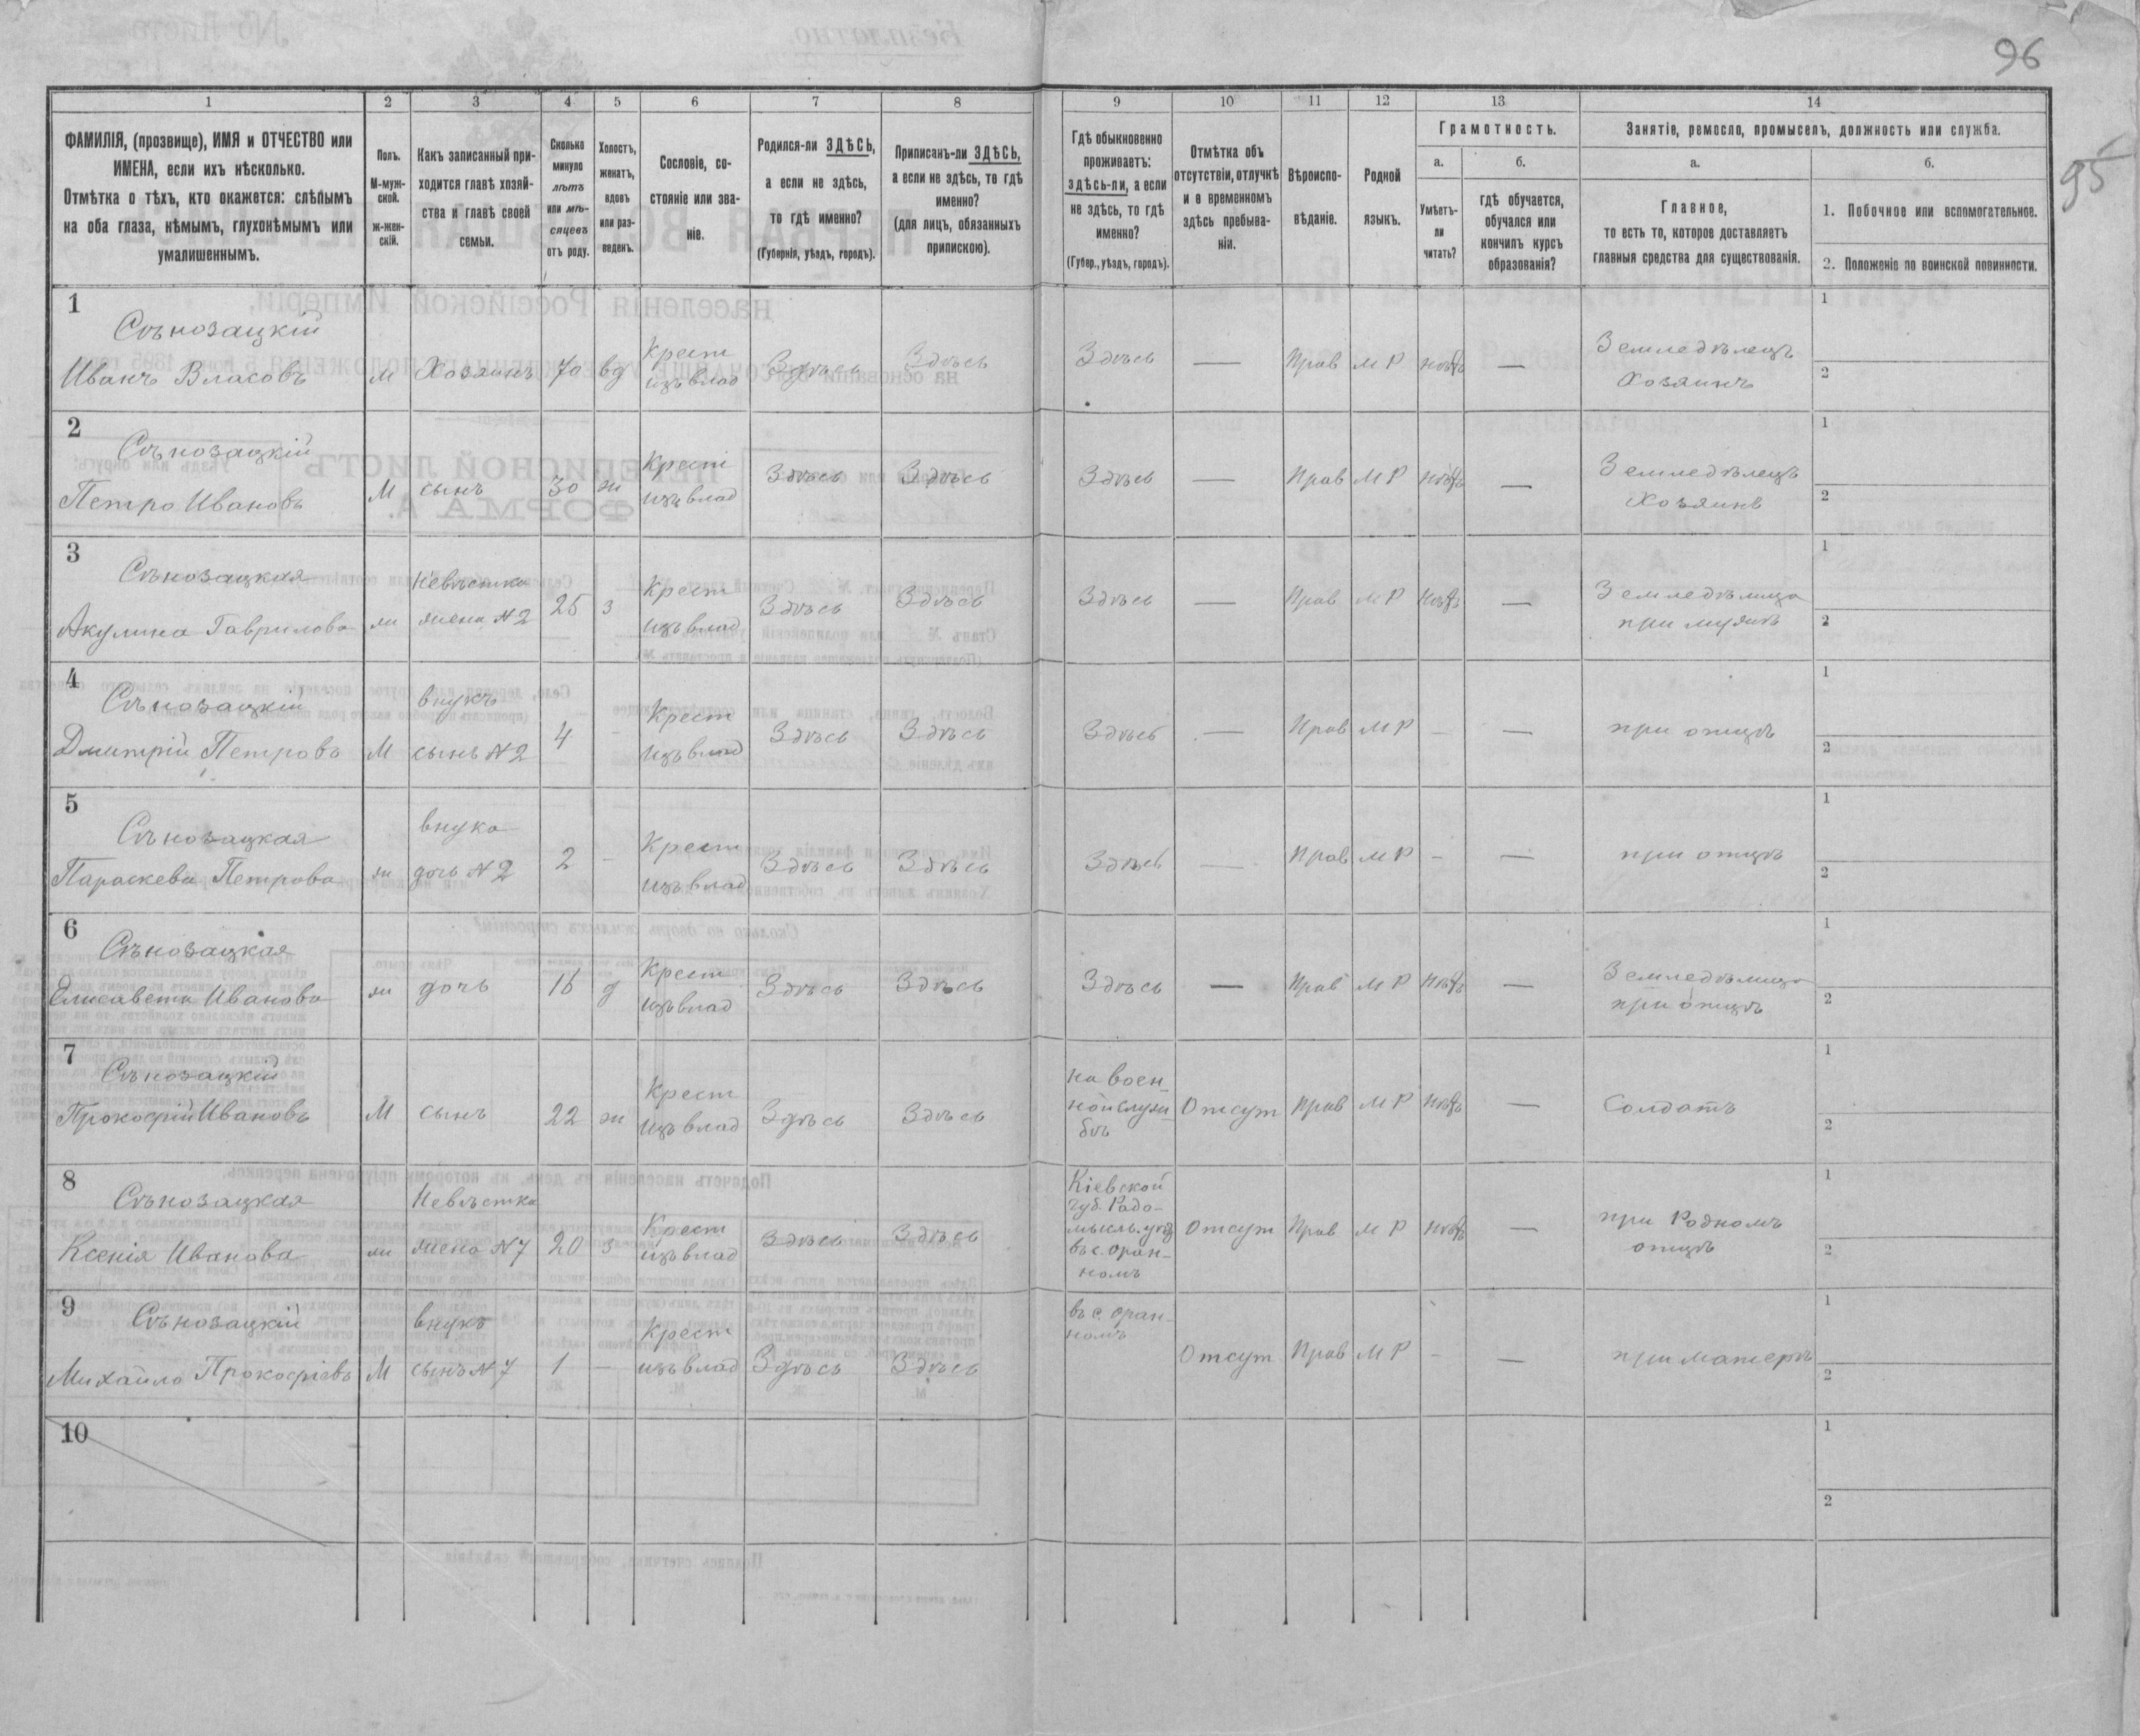 96
95
1 2 3 4 5 6 7 8 9 10 11 12 13 14
ФАМИЛІЯ, (прозвище), ИМЯ и ОТЧЕСТВО или
ИМЕНА, если ихъ нѣсколько.
Отмѣтка о тѣхъ, кто окажется: слѣпымъ
на оба глаза, нѣмымъ, глухонѣмымъ или
умалишеннымъ.
Полъ.
М-муж-
ской.
ж-жен-
скій.
Какъ записанный при-
ходится главѣ хозяй-
ства и главѣ своей
семьи.
Сколько
минуло
лѣтъ
или мѣ-
сяцевъ
отъ роду.
Холостъ,
женатъ,
вдовъ
или раз-
веденъ.
Сословіе, со-
стояніе или зва-
ніе.
Родился-ли ЗДѢСЬ,
а если не здѣсь,
то гдѣ именно?
(Губернія, уѣздъ, городъ).
Приписанъ-ли ЗДѢСЬ,
а если не здѣсь, то гдѣ
именно?
(для лицъ, обязанныхъ
припискою).
Гдѣ обыкновенно
проживаетъ:
здѣсь-ли, а если
не здѣсь, то гдѣ
именно?
(Губер., уѣздъ, городъ).
Отмѣтка объ
отсутствіи, отлучкѣ
и о временномъ
здѣсь пребыва-
ніи.
Вѣроиспо-
вѣданіе.
Родной
языкъ.
Грамотность.
а.
Умѣетъ-
ли
читать?
б.
гдѣ обучается,
обучался или
кончилъ курсъ
образованія?
Занятіе, ремесло, промыселъ, должность или служба.
а.
Главное,
то есть то, которое доставляетъ
главныя средства для существованія.
б.
1. Побочное или вспомогательное.
2. Положеніе по воинской повинности.
1
Сѣнозацкій крест Земледѣлецъ 1
Иванъ Власовъ М Хозяинъ 70 вд изъ влад Здѣсь Здѣсь Здѣсь — Прав М Р нѣтъ — Хозяинъ 2
2
Сѣнозацкій Крест Земледѣлецъ 1
Петро Ивановъ М сынъ 30 ж изъ влад Здѣсь Здѣсь Здѣсь — Прав М Р нѣтъ — Хозяинъ 2
3
Сѣнозацкая Невѣстка Крест Земледѣлица 1
Акулина Гаврилова ж жена N2 25 з изъ влад Здѣсь Здѣсь Здѣсь — Прав М Р нѣтъ — при мужѣ 2
4
Сѣнозацкій внукъ Крест 1
Дмитрій Петровъ М сынъ N2 4 - изъ влад Здѣсь Здѣсь Здѣсь — Прав М Р - — при отцѣ 2
5
Сѣнозацкая внука Крест 1
Параскева Петрова ж дочь N2 2 - изъ влад Здѣсь Здѣсь Здѣсь — Прав М Р - — при отцѣ 2
6
Сѣнозацкая Крест Земледѣлица 1
Елисавета Иванова ж дочь 16 д изъ влад Здѣсь Здѣсь Здѣсь — Прав М Р нѣтъ — при отцѣ 2
7
Сѣнозацкій Крест на воен- 1
Прокофій Ивановъ М сынъ 22 ж изъ влад Здѣсь Здѣсь ной служ- Отсут Прав М Р нѣтъ — Солдатъ 2
бѣ
8
Сѣнозацкая Невѣстка Крест Кіевской 1
губ. Радо-
Ксенія Иванова ж жена N7 20 з изъ влад Здѣсь Здѣсь мысль. уѣз Отсут Прав М Р нѣтъ — при Родномъ
въ с. Оран- отцѣ 2
номъ
9
Сѣнозацкій внукъ Крест въ с. Оран- 1
номъ
Михайло Прокофіевъ М сынъ N7 1 — изъ влад Здѣсь Здѣсь Отсут Прав М Р - — при матерѣ 2
10 1
2